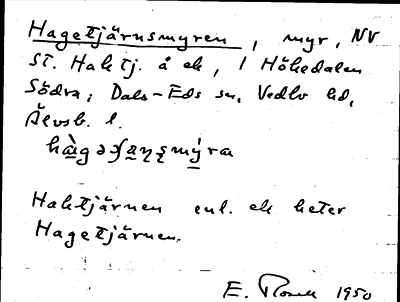 Hagetjärnsmyren, myr, NV
St. Haktj. å ek, l Hökedalen
Södra, Dals-Eds sn, Vedbo hd,
Älvsb. l.
Haktjärnen enl. ek heter
Hagetjärnen.
E. 1950